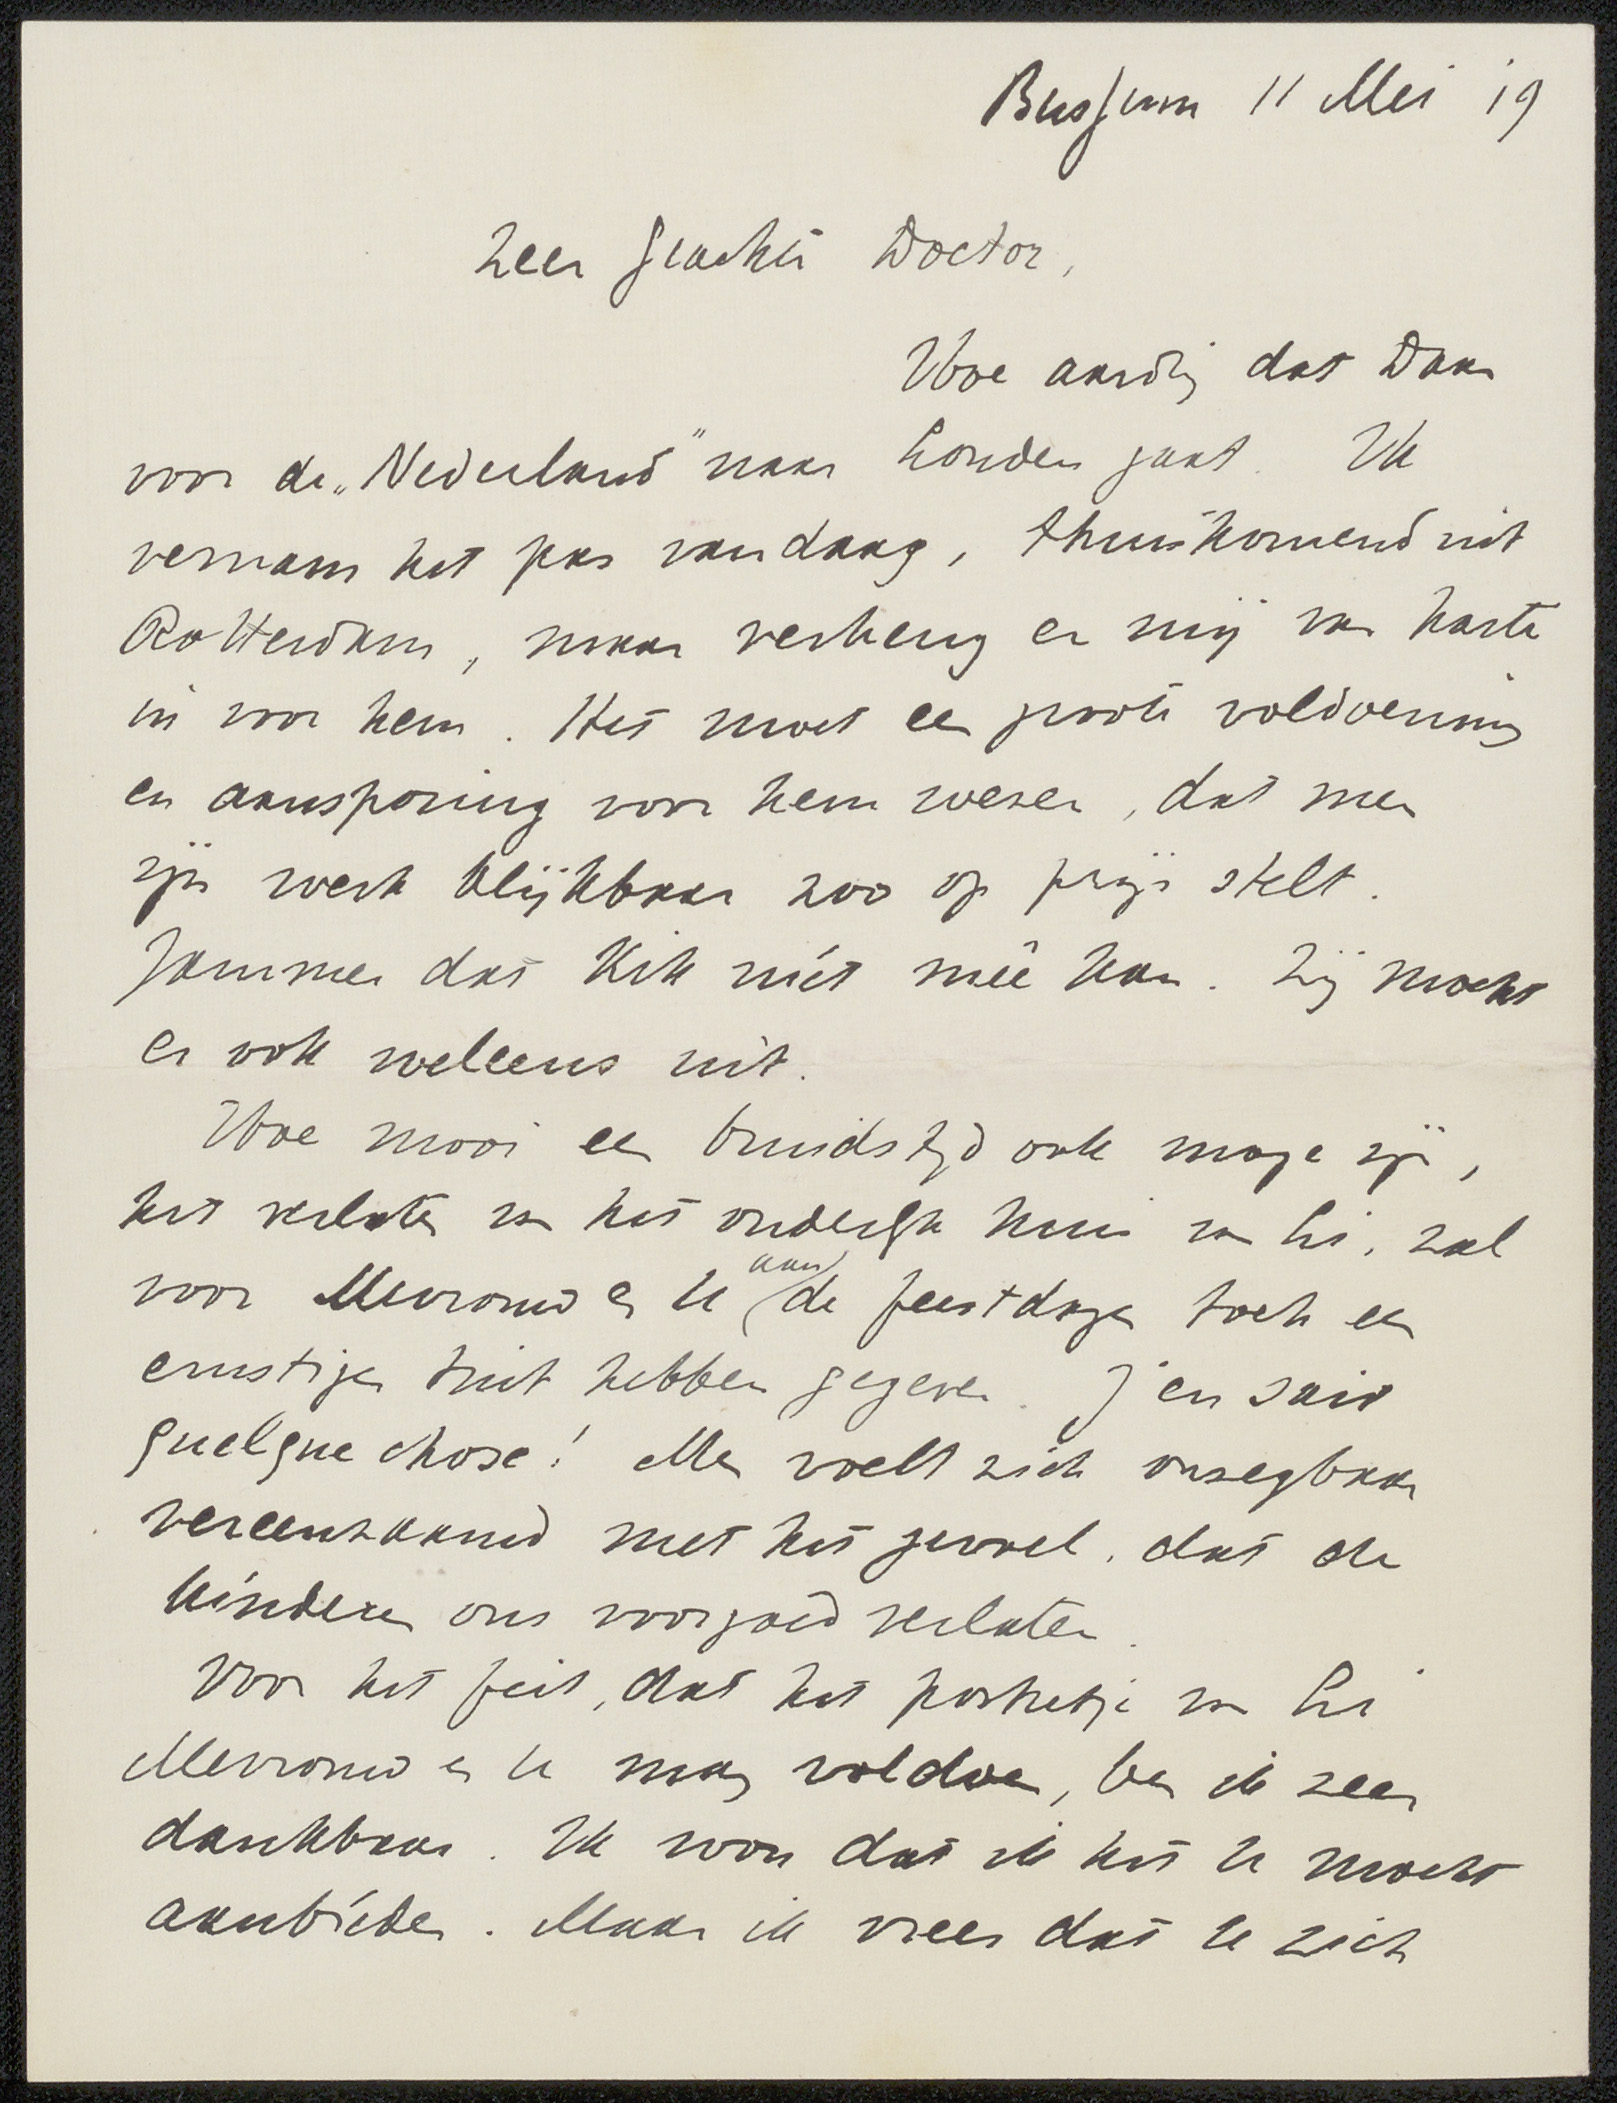 Bussum 11 Mei 19
Zeer geachte Doctor,
Hoe aardig dat Daan
voor de „Nederland" naar Londen gaat. Ik
vernam het pas vandaag, thuiskomend uit
Rotterdam, maar verheug er mij van harte
in voor hem. Het moet een groote voldoening
en aansporing voor hem wezen, dat men
zijn werk blijkbaar zoo op prijs stelt.
Jammer dat Kik niet meê kan. Zij mocht
er ook weleens uit.
Hoe mooi een bruidstijd ook moge zijn,
het verlaten van het ouderlijk huis van Li, zal
voor Mevrouw en U aan de feestdagen toch een
ernstigen tint hebben gegeven. J'en sais
quelque chose! Men voelt zich onzegbaar
vereenzaamd met het gevoel, dat de
kinderen ons voorgoed verlaten.
Voor het feit, dat het portretje van Li
Mevrouw en U mag voldoen, ben ik zeer
dankbaar. Ik wou dat ik het U mocht
aanbieden. Maar ik vrees dat U zich